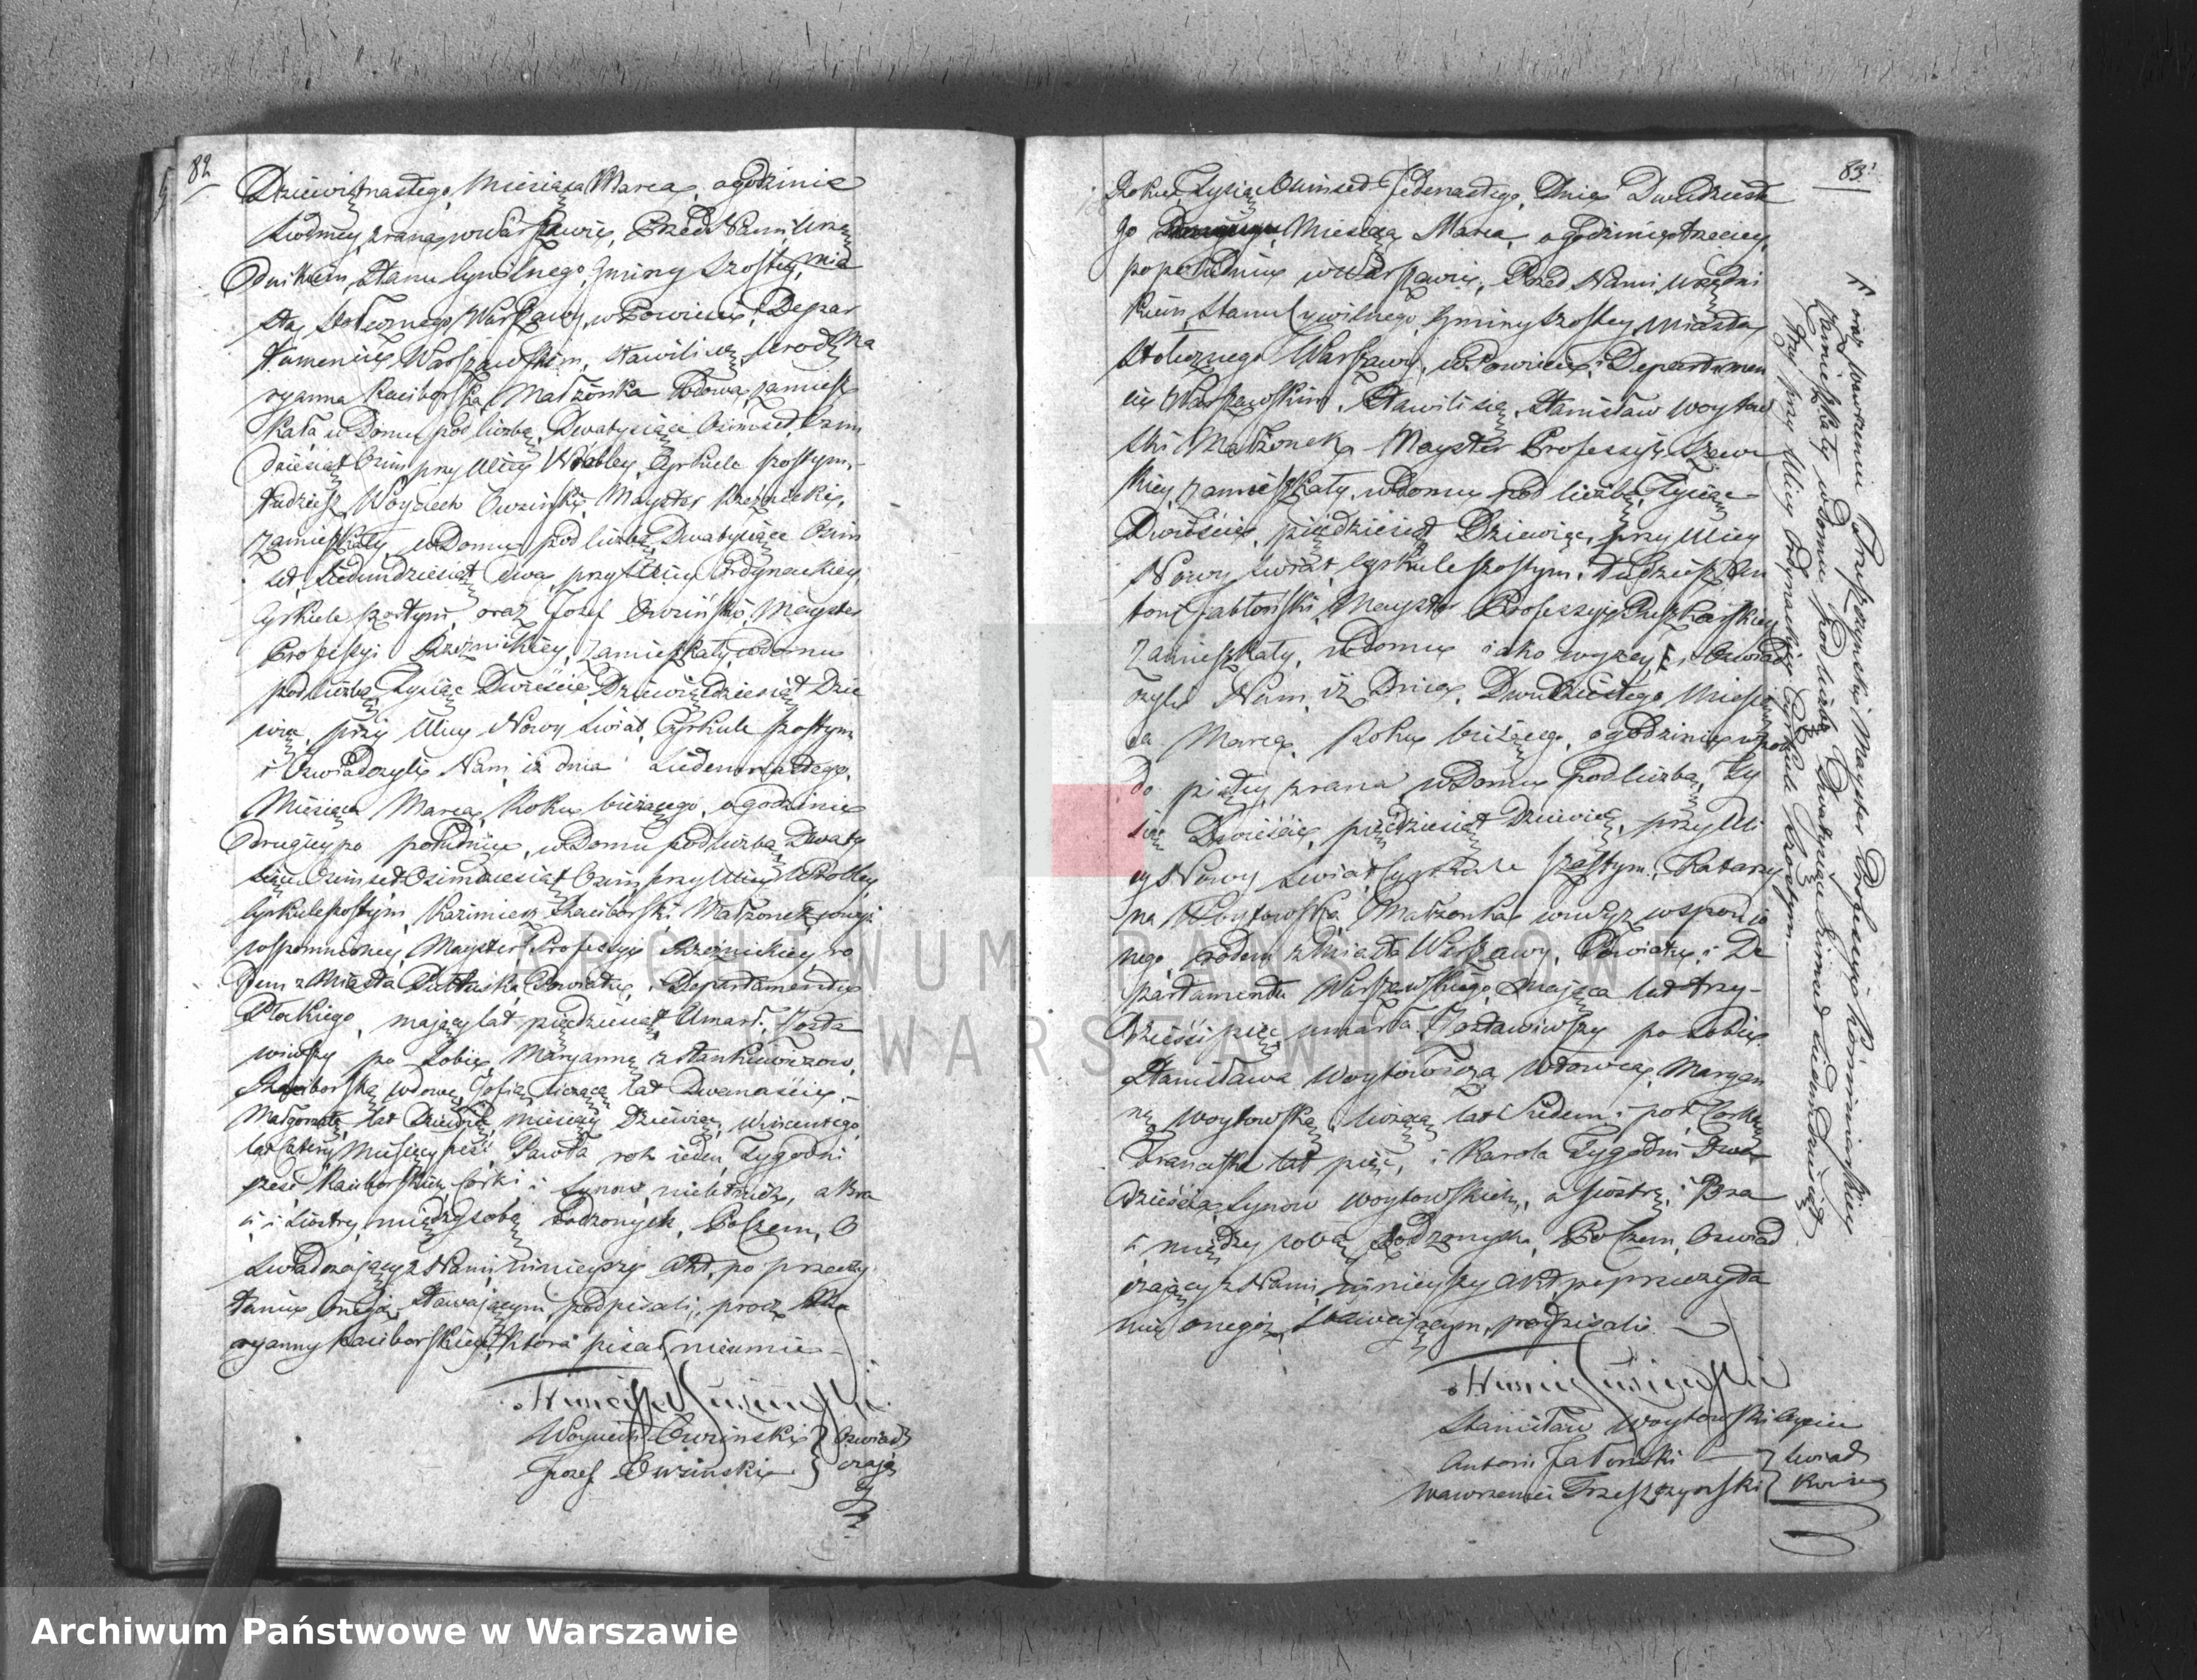 82
Dziewiętnastego, Miesiąca Marca, o godzinie
siódmey zrana, w Warszawie, Przed Nami Urzę
dnikiem Stanu Cywilnego, Gminy Szostey, mia
sta Stołecznego Warszawy, w Powiecie i Depar
tamencie Warszawskim, stawili się, Urodz. Ma
ryanna Raciborska, Małżonka Wdowa, zamiesz
kała w Domu pod liczbą, Dwatysiące Osimset, Osim
dziesiąt Osim przy Ulicy Wróbley, Cyrkule szostym,
tudziesz Woyciech Owsinski, Mayster Rzeźnicki,
zamieszkały w Domu pod liczbą Dwatysiące Osim
set siedmdziesiąt dwa, przy Ulicy Ordynackiey,
Cyrkule szostym, oraz Jozef Owsinski, Mayster
Professyi Rzeznickiey, zamieszkały w domu
pod liczbą Tysiąc Dwieście Dziewięćdziesiąt Dzie
więc, przy Ulicy Nowy Świat, Cyrkule szostym
i Oswiadczyli Nam, iż dnia Siedemnastego,
Miesiąca Marca, Roku bieżącego, o godzinie
drugiey po południu, w Domu pod liczbą Dwaty
siące Osimset Osimdziesiąt Osim, przy Ulicy Wrobley,
Cyrkule szostym, Kazimierz Raciborski, Małżonek, wyżej
wspomnioney, Mayster Professyi Rzeźnickiey, ro
dem z Miasta Pułtuska, Powiatu, i Departamentu
Płockiego, maiący lat pięćdziesiąt, Umarł. Zosta
wiwszy po sobie, Maryannę z Stankiewiczow,
Raciborską wdowę, Zofię, liczącą lat Dwanaście,
Małgorzatę, lat miesięcy Dziewięć, Wincentego,
lat cztery, Miesięcy sześć, Pawła rok ieden, Tygodni
sześć Raciborskich, Corki i Synow, nieletnich, a Bra
ci i Siostry, między sobą Rodzonych, Poczem, O
świadczaiący z Nami ninieyszy Akt, po przeczy
taniu Onegoż Stawaiącym, podpisali, procz Ma
ryanny Raciborskiey, ktora pisać nieumie
Woyciech Owsinski } Oswiad
Jozef Owsinski } czaią
cy
83
Roku, Tysiąc Osimset Jedenastego, Dnia Dwudzieste
go Miesiąca Marca, o godzinie trzeciey,
popołudniu w Warszawie, Przed Nami, Urzędni
kiem, Stanu Cywilnego, Gminy Szostey, Miasta,
Stołecznego Warszawy, w Powiecie i Departamen
cie Warszawskim, Stawili się, Stanisław Woytow
ski Małżonek, Mayster Professyi, Szew
skiey, zamieszkały, w domu pod liczbą, Tysiąc
Dwieście, pięćdziesiąt Dziewięć, przy Ulicy
Nowy Świat, Cyrkule szostym, tudziesz An
toni Jabłoński, Mayster Professyi
zamieszkały, w domu iako wyżey, i Oswiad
czyli Nam, iż Dnia, Dwudziestego, Miesią
ca Marca, Roku bieżącego, o godzinie wpoł
do piątey zrana, w Domu pod liczbą, Ty
siąc Dwieście, pięćdziesiąt Dziewięć, przy Uli
cy Nowy Świat, Cyrkule szostym, Katarzy
na Woytowska, Małżonka, wwyż wspomnio
nego, rodem z Miasta Warszawy, Powiatu, i De
partamentu Warszawskiego, maiąca lat trzy
dzieści pięć, umarła. Zostawiwszy po sobie
Stanisława Woytowicza, Wdowca, Maryan
nę Woytowską, liczącą lat siedem i poł Corkę
Franciszka lat pięć, i Karola Tygodni Dwa
dzieścia, Synow Woytowskich, a siostrę, i Bra
ci, między sobą Rodzonych, Poczem, Oswiad
czaiący z Nami, ninieyszy Akt, po przeczyta
niu onegoż, Stawaiącym, podpisali.
Stanisław Woytowski Oyciec
Antoni Jabłoński } Swiad
Wawrzeniec Trzeszczynski } kowie
oraz Wawrzeniec Trzeszczynski Mayster Professyi Kominiarskiey
zamieszkały w domu pod liczbą Dwatysiące Osimset siedmdziesiąt
trzy przy Ulicy Ordynackiey Cyrkule szostym
Archiwum Państwowe w Warszawie
ARCHIWUM PAŃSTWOWE
W WARSZAWIE